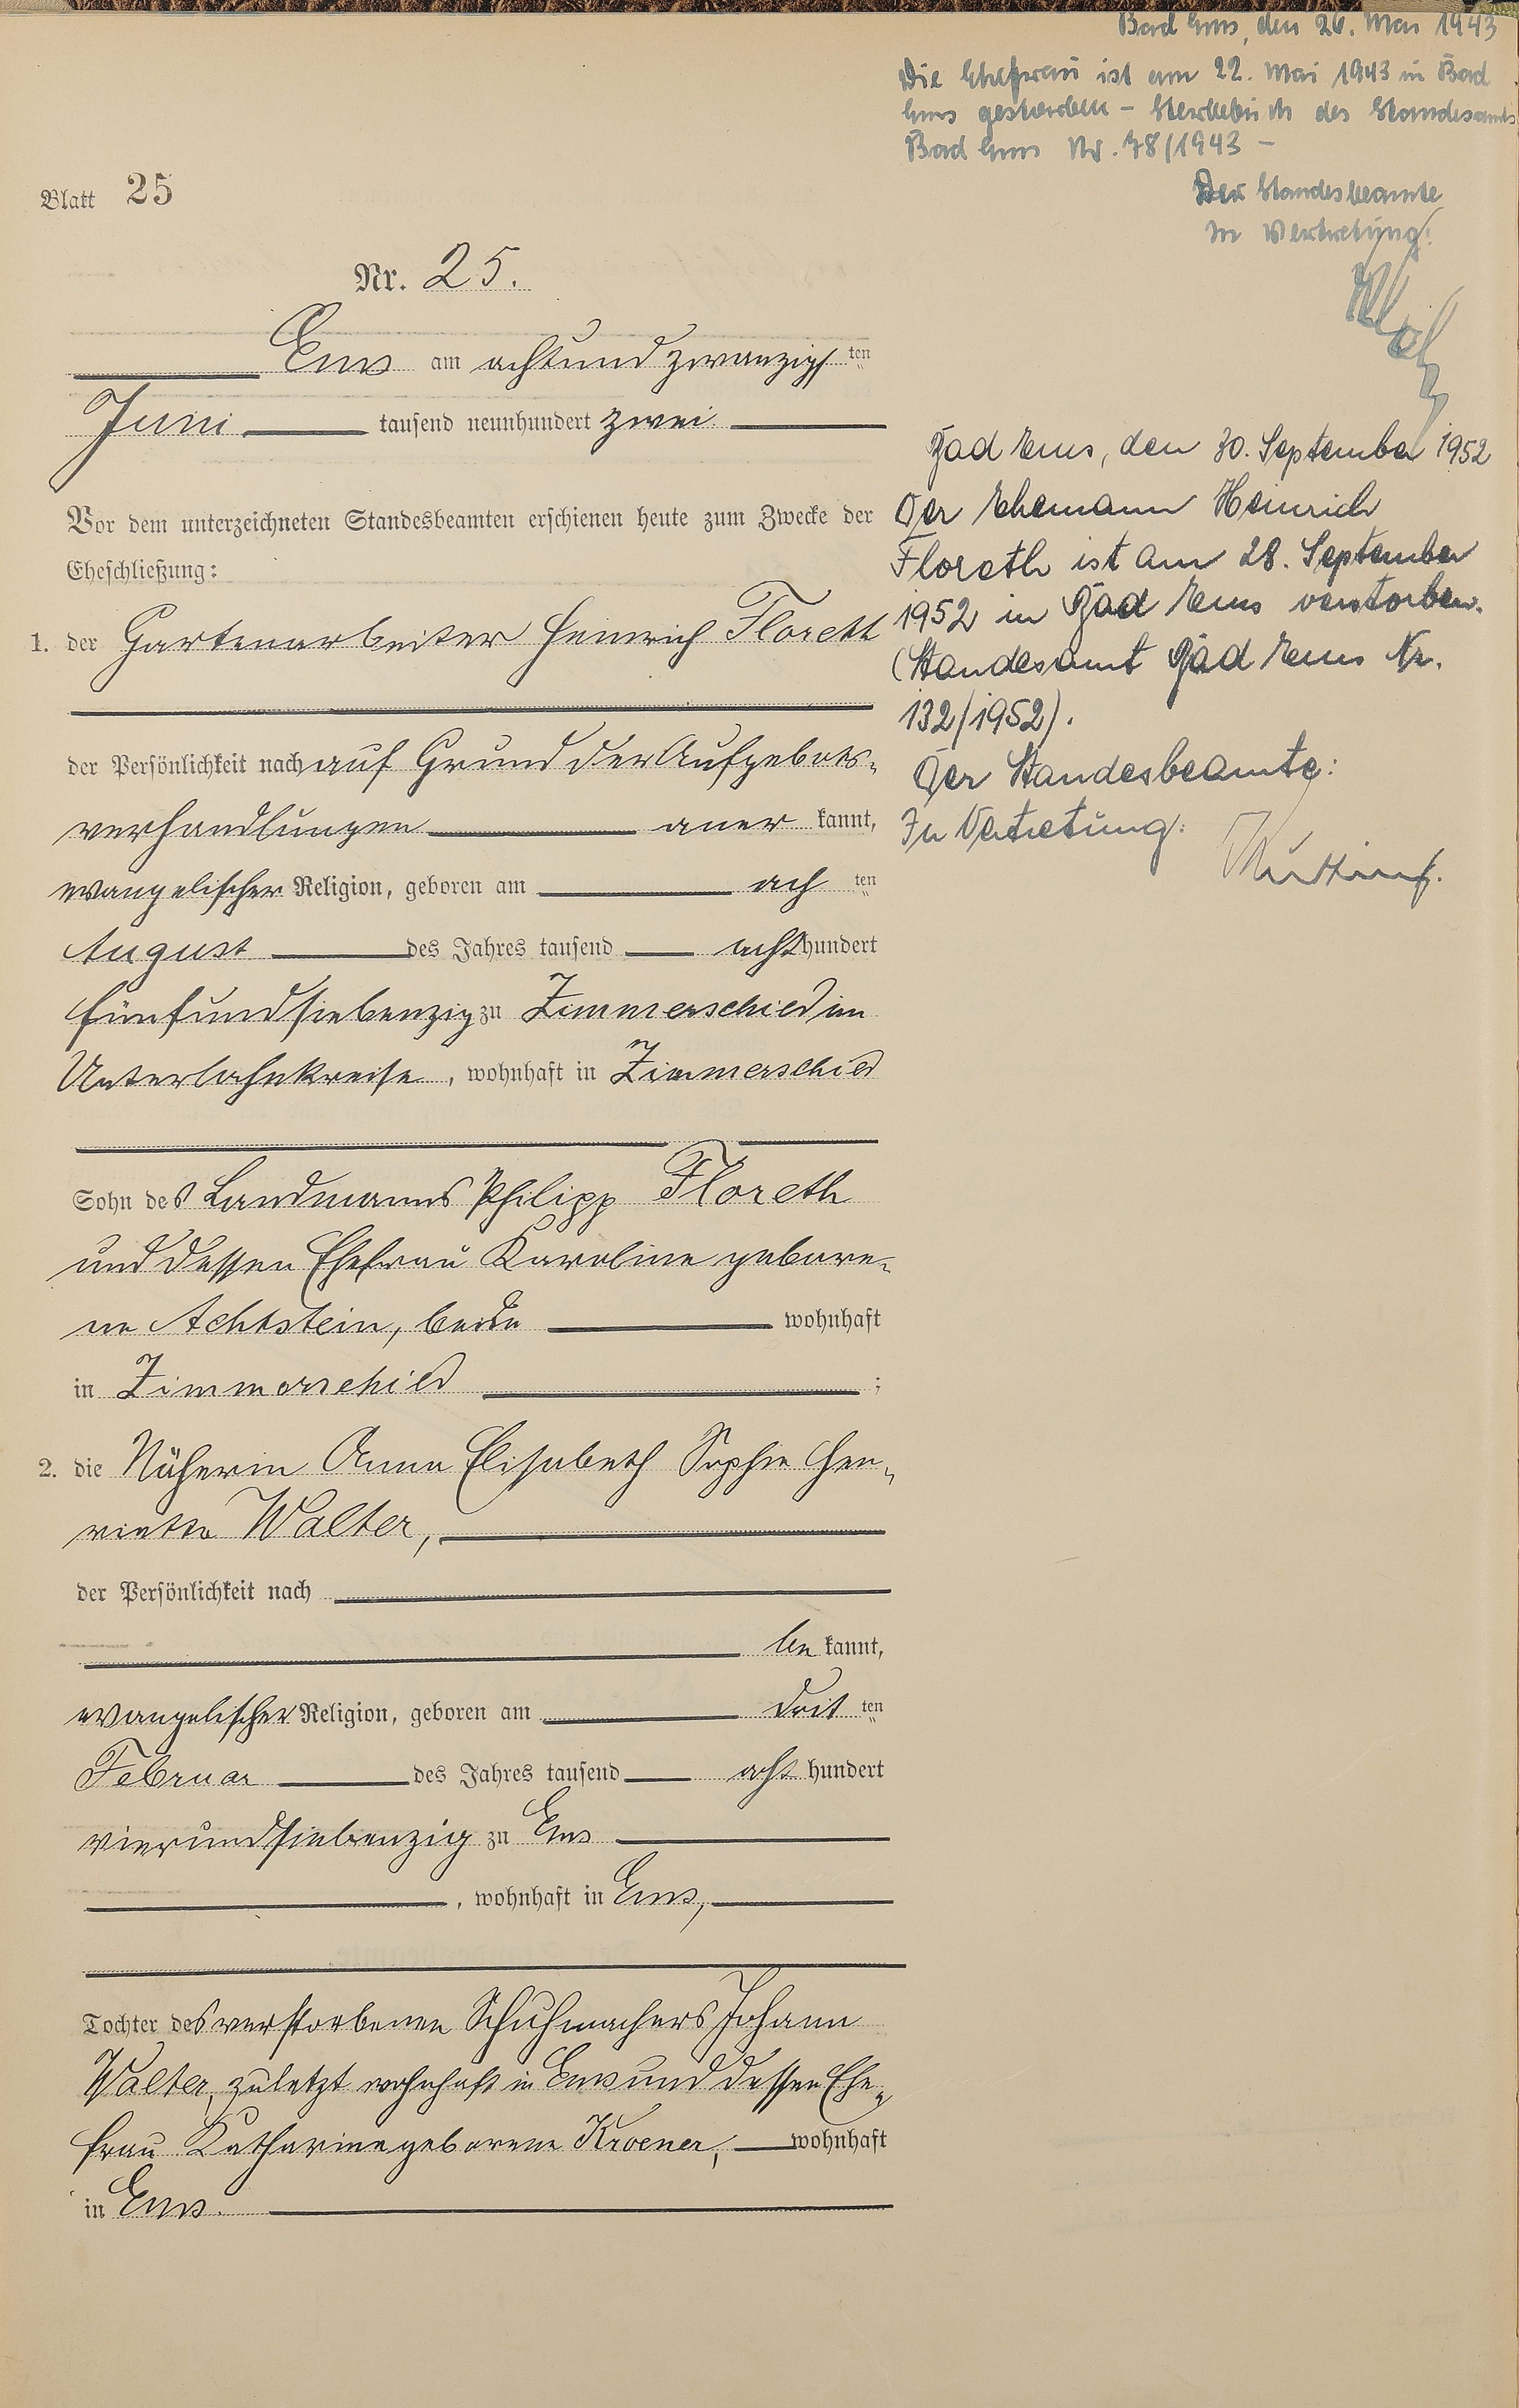 Blatt 25
Nr. 25.
Ems am achtundzwanzigsten
Juni tausend neunhundert zwei
Vor dem unterzeichneten Standesbeamten erschienen heute zum Zwecke der
Eheschließung:
1. der Gartenarbeiter Heinrich Floreth
der Persönlichkeit nach auf Grund der Aufgebots-
verhandlungen anerkannt,
evangelischer Religion, geboren am achten
August des Jahres tausend achthundert
fünfundsiebenzig zu Zimmerschied im
Unterlahnkreise, wohnhaft in Zimmerschied
Sohn des Landmanns Philipp Floreth
und dessen Ehefrau Karoline gebore-
ne Achtstein, beide wohnhaft
in Zimmerschied ;
2. die Näherin Anna Elisabeth Sophie Hen-
riette Walter,
der Persönlichkeit nach
bekannt,
evangelischer Religion, geboren am dritten
Februar des Jahres tausend achthundert
vierundsiebenzig zu Ems
, wohnhaft in Ems,
Tochter des verstorbenen Schuhmachers Johann
Walter, zuletzt wohnhaft in Ems und dessen Ehe-
frau Katharine geborene Kroener, wohnhaft
in Ems.
Bad Ems, den 26. Mai 1943
Die Ehefrau ist am 22. Mai 1943 in Bad
Ems gestorben - Sterbebuch des Standesamts
Bad Ems Nr. 78/1943 -
Der Standesbeamte
In Vertretung:
Bad Ems, den 30. September 1952
Der Ehemann Heinrich
Floreth ist am 28. September
1952 in Bad Ems verstorben.
(Standesamt Bad Ems Nr.
132/1952).
Der Standesbeamte:
In Vertretung: